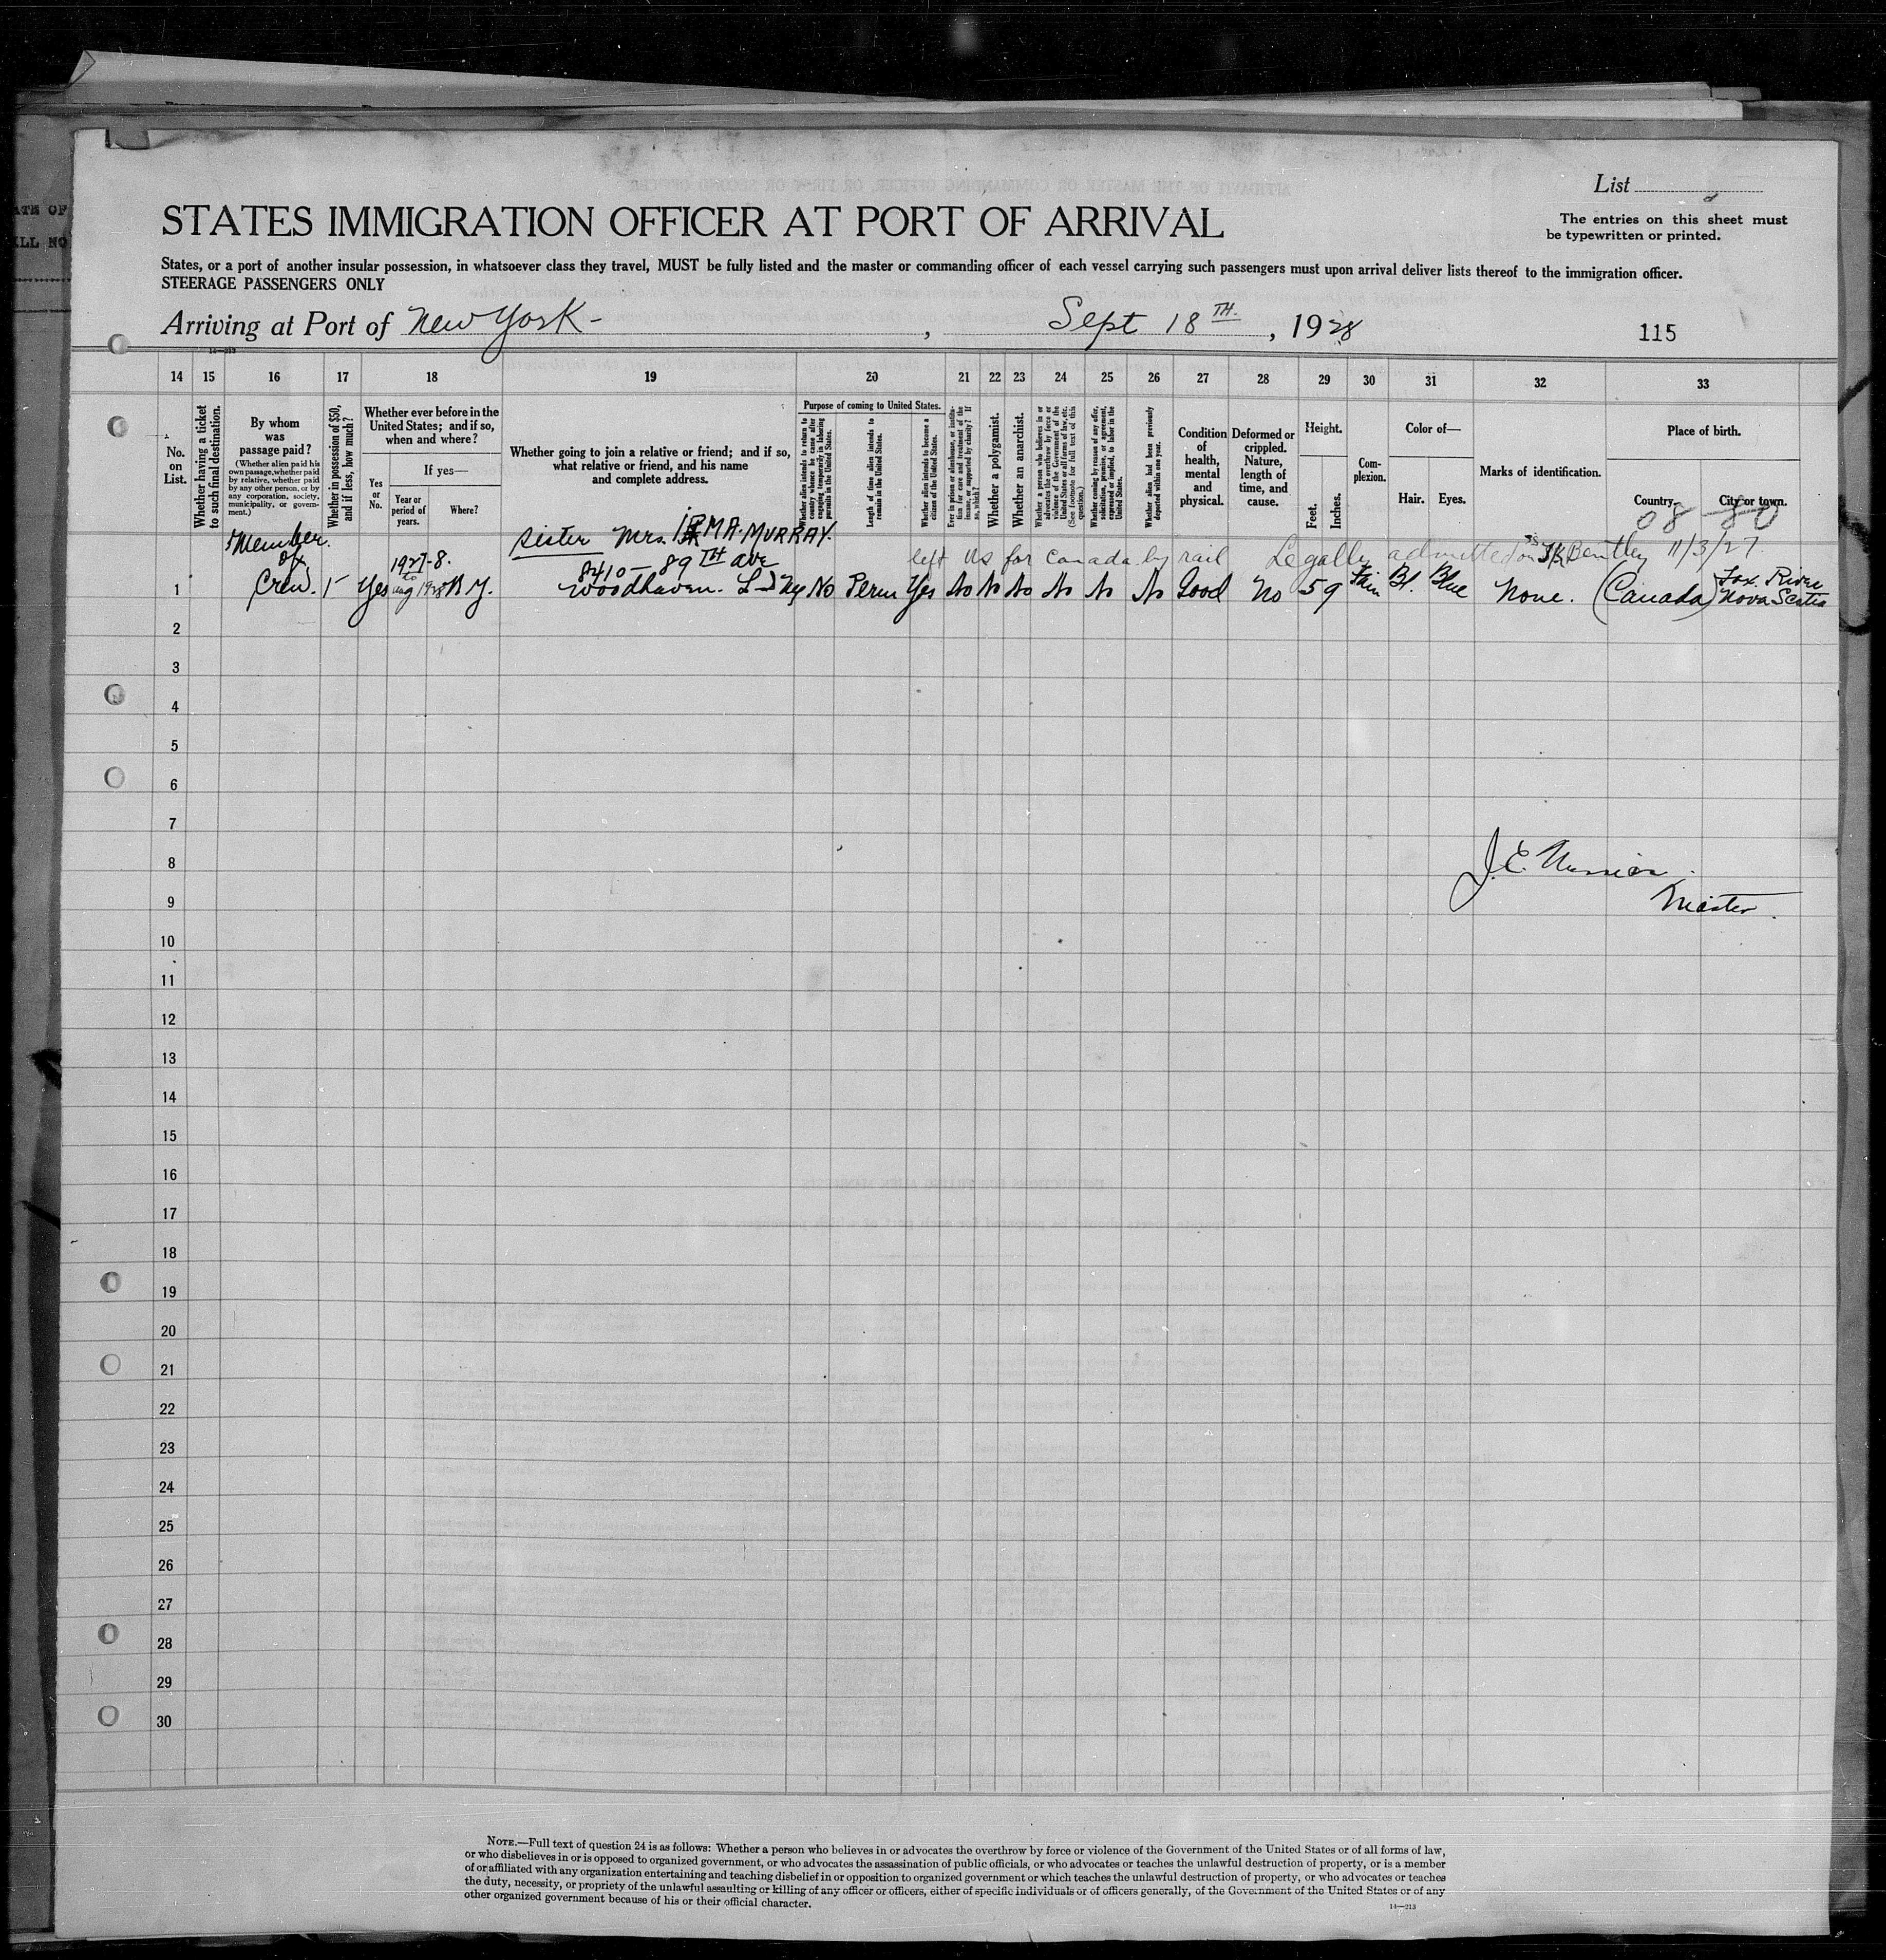 ATE OF
ILL NO
List
The entries on this sheet must
be typewritten or printed.
STATES IMMIGRATION OFFICER AT PORT OF ARRIVAL
States, or a port of another insular possession, in whatsoever class they travel, MUST be fully listed and the master or commanding officer of each vessel carrying such passengers must upon arrival deliver lists thereof to the immigration officer.
STEERAGE PASSENGERS ONLY
Arriving at Port of New York - , Sept 18TH, 1928
115
14—213
14 15 16 17 18 19 20 21 22 23 24 25 26 27 28 29 30 31 32 33
No.
on
List.
Whether having a ticket
to such final destination.
By whom
was
passage paid?
(Whether alien paid his
own passage, whether paid
by relative, whether paid
by any other person, or by
any corporation, society,
municipality, or govern-
ment.)
Whether in possession of $50,
and if less, how much?
Whether ever before in the
United States; and if so,
when and where?
Yes
or
No.
If yes—
Year or
period of
years.
Where?
Whether going to join a relative or friend; and if so,
what relative or friend, and his name
and complete address.
Purpose of coming to United States.
Whether alien intends to return to
country whence he came after
engaging temporarily in laboring
pursuits in the United States.
Length of time alien intends to
remain in the United States.
Whether alien intends to become a
citizen of the United States.
Ever in prison or almshouse, or institu-
tion for care and treatment of the
insane, or supported by charity? If
so, which?
Whether a polygamist.
Whether an anarchist.
Whether a person who believes in or
advocates the overthrow by force or
violence of the Government of the
United States or all forms of law, etc.
(See footnote for full text of this
question.)
Whether coming by reason of any offer,
solicitation, promise, or agreement,
expressed or implied, to labor in the
United States.
Whether alien had been previously
deported within one year.
Condition
of
health,
mental
and
physical.
Deformed or
crippled.
Nature,
length of
time, and
cause.
Height.
Feet.
Inches.
Com-
plexion.
Color of—
Hair.
Eyes.
Marks of identification.
Place of birth.
Country.
City or town.
08 80
Member
of
Crew.
sister Mrs. IRMA. MURRAY.
8410 - 89TH ave
left US for Canada by rail Legally admitted on Bentley 11/3/27
1927-8.
1 Yes Aug 1928 N.Y. Woodhaven. L-I NY No Perm Yes No No No No No No Good No 5 9 Bl. Blue None. (Canada) Fox River
Nova Scotia
2
3
4
5
6
7
8
J. E.
9
Master.
10
11
12
13
14
15
16
17
18
19
20
21
22
23
24
25
26
27
28
29
30
NOTE.—Full text of question 24 is as follows: Whether a person who believes in or advocates the overthrow by force or violence of the Government of the United States or of all forms of law,
or who disbelieves in or is opposed to organized government, or who advocates the assassination of public officials, or who advocates or teaches the unlawful destruction of property, or is a member
of or affiliated with any organization entertaining and teaching disbelief in or opposition to organized government or which teaches the unlawful destruction of property, or who advocates or teaches
the duty, necessity, or propriety of the unlawful assaulting or killing of any officer or officers, either of specific individuals or of officers generally, of the Government of the United States or of any
other organized government because of his or their official character.
14—213